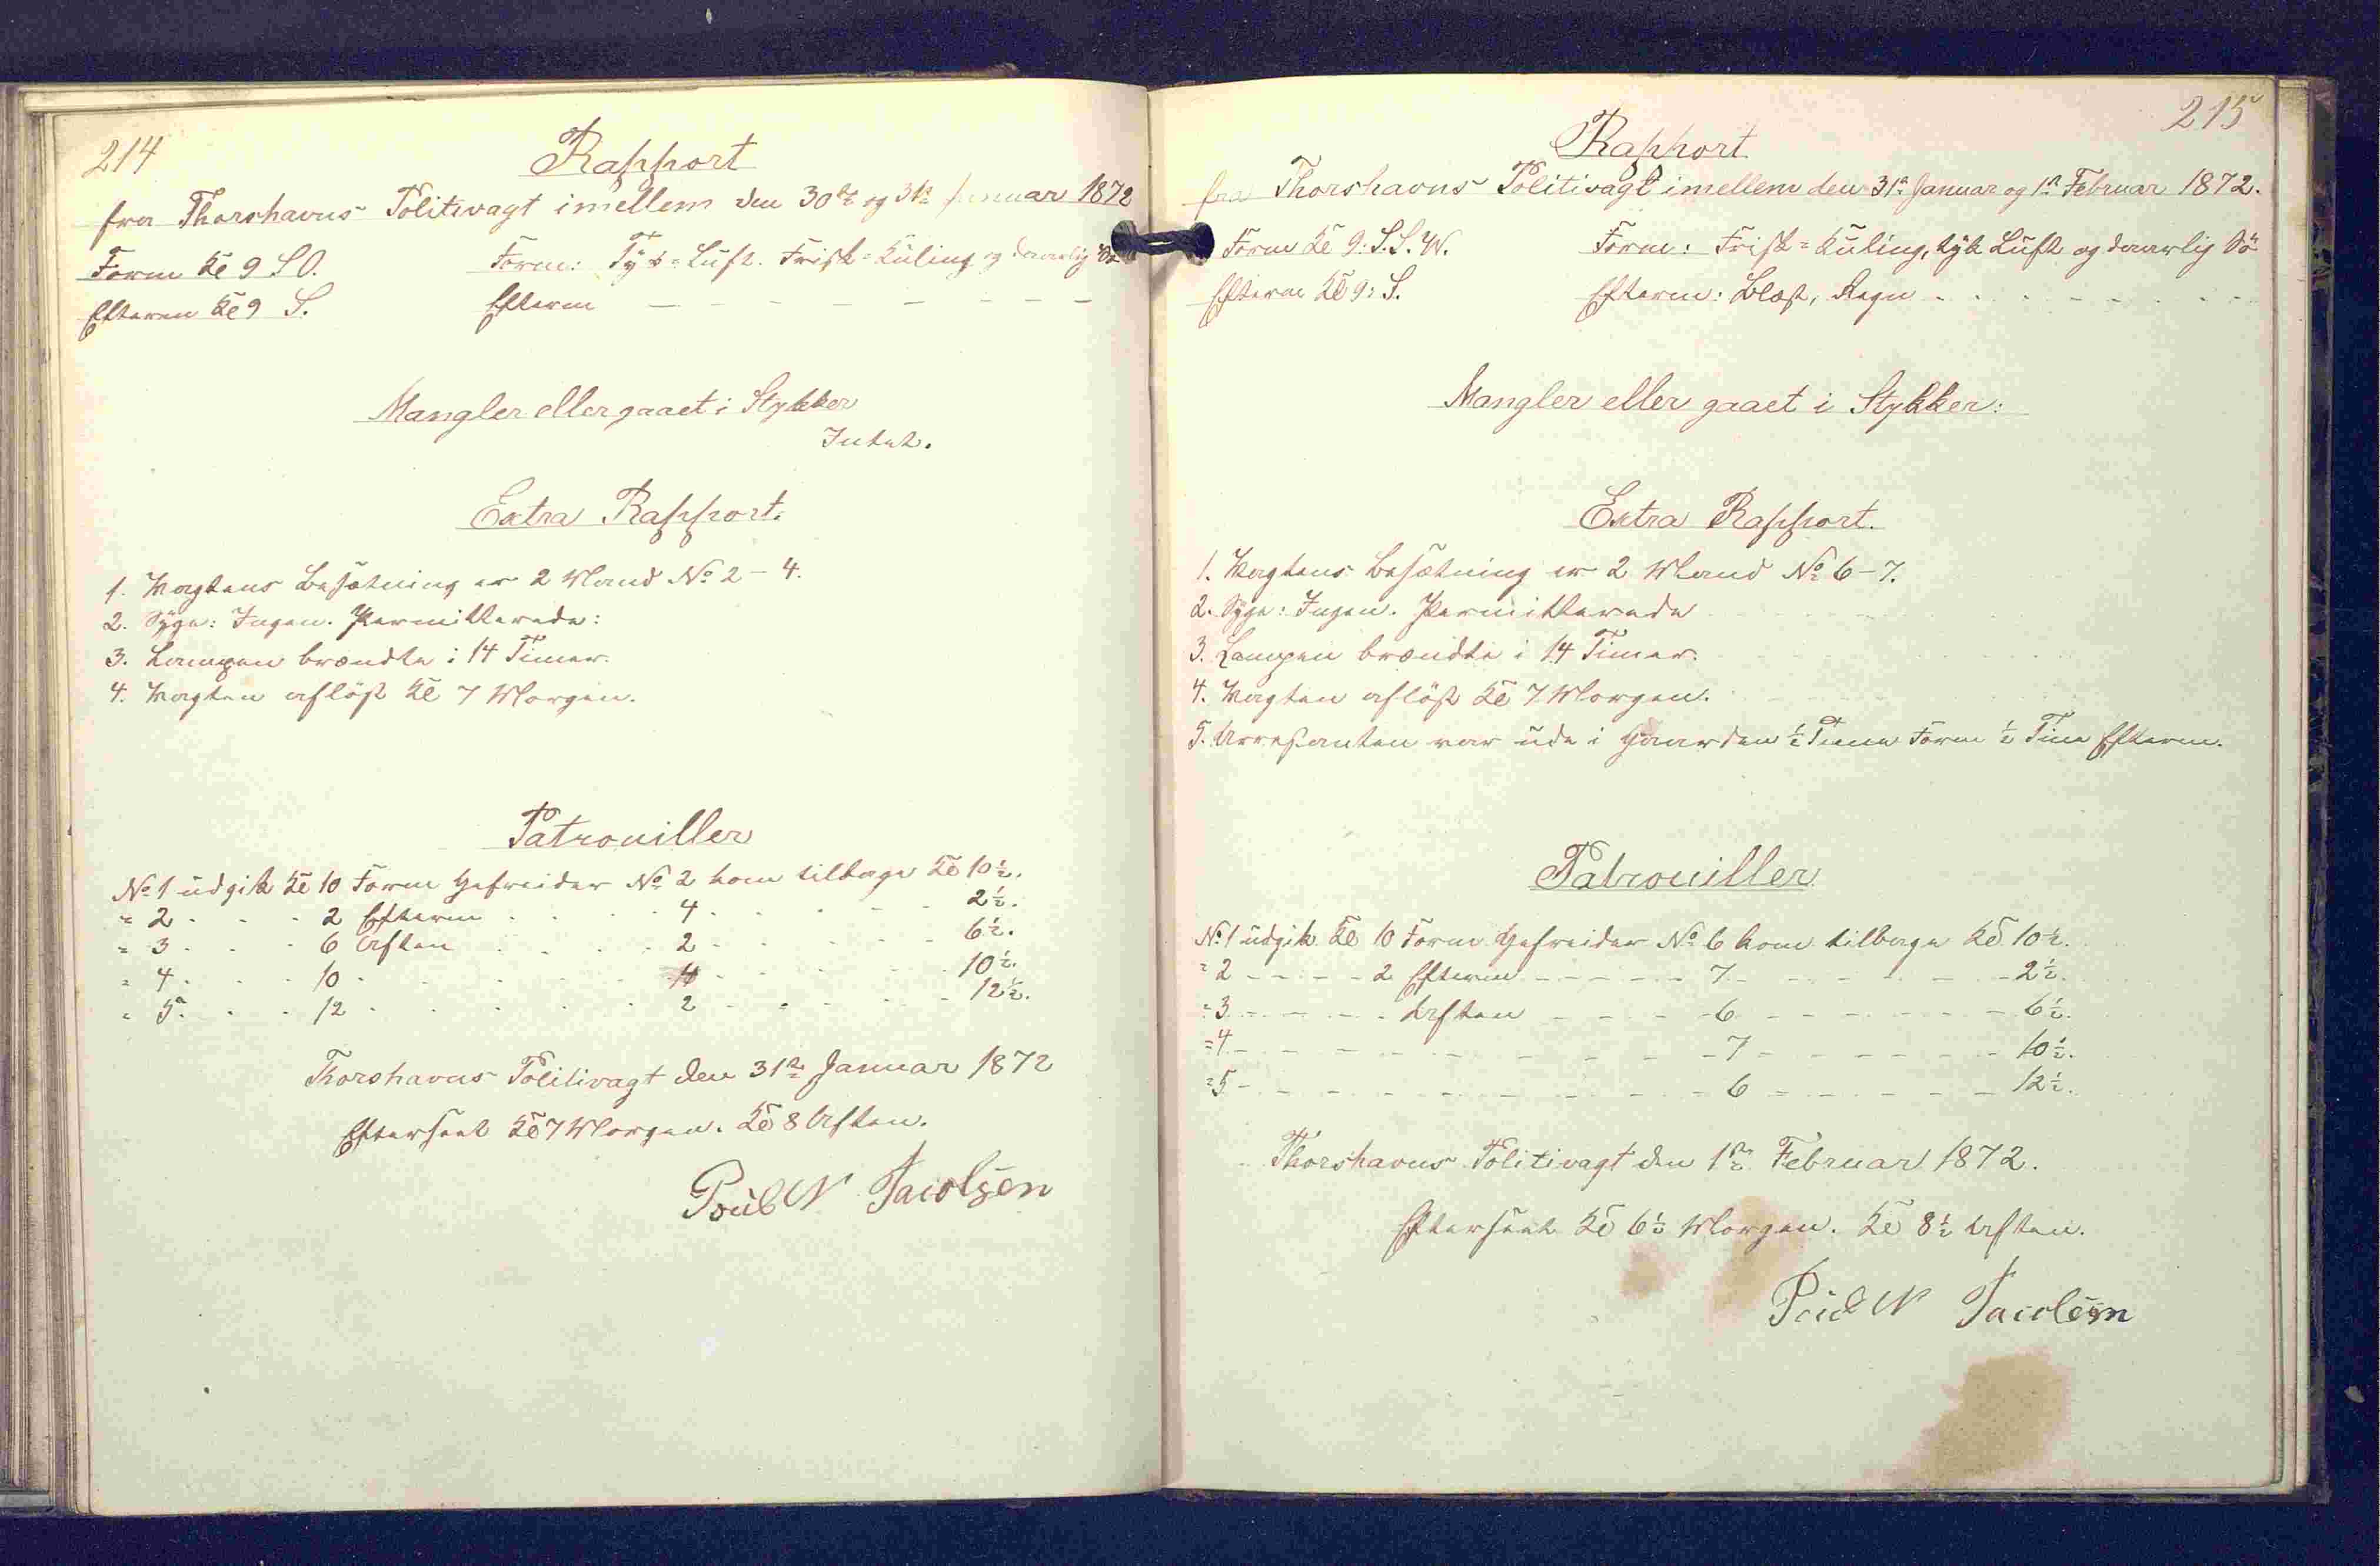 214
Rapport
fra Thorshavns Politivagt imellem den 30te og 31te Januar 1872
Form Kl 9 S.O. Form: Tyk=Luft. Frisk=Kuling og daarlig Sö
Efterm Kl 9 S. Efterm — — — — — — —
Mangler eller gaaet i Stykker
Intet.
Extra Rapport.
1. Vagtens Besætning er 2 Mand No 2 – 4.
2. Syge: Ingen. Permitterede:
3. Lampen brændte i 14 Timer.
4. Vagten aflöst Kl 7 Morgen.
Patrouiller
No 1 udgik Kl 10 Form Gefreider No 2 kom tilbage Kl 10½.
" 2 - - - 2 Efterm - - - 4 - - - - 2½.
" 3 - - - 6 Aften - - - 2 - - - - 6½.
" 4 - - - 10 - - - - 4 - - - - 10½.
" 5 - - - 12 - - - - 2 - - - - 12½.
Thorshavns Politivagt den 31te Januar 1872
Efterseet Kl 7 Morgen. Kl 8 Aften.
Poul N Jacobsen
215
Rapport
fra Thorshavns Politivagt imellem den 31te Januar og 1ste Februar 1872.
Form Kl 9: S.S.W. Form: Frisk=Kuling, tyk Luft og daarlig Sö
Efterm Kl 9: S. Efterm: Blæst, Regn - - - - - - - -
Mangler eller gaaet i Stykker:
Extra Rapport.
1. Vagtens Besætning er 2 Mand No 6–7.
2. Syge: Ingen. Permitterede
3. Lampen brændte i 14 Timer.
4. Vagten aflöst Kl 7 Morgen.
5. Arrestanten var ude i Gaarden ½ Time Form ½ Time Efterm.
Patrouiller
No 1 udgik Kl 10 Form Gefreider No 6 kom tilbage Kl 10½.
" 2 - - - - 2 Efterm - - - - 7 - - - - - 2½.
" 3 - - - - Aften - - - - 6 - - - - - 6½.
" 4 - - - - - - - - - 7 - - - - - 10½.
" 5 - - - - - - - - - 6 - - - - - 12½.
Thorshavns Politivagt den 1ste Februar 1872.
Efterseet Kl 6½ Morgen. Kl 8½ Aften.
Poul N Jacobsen